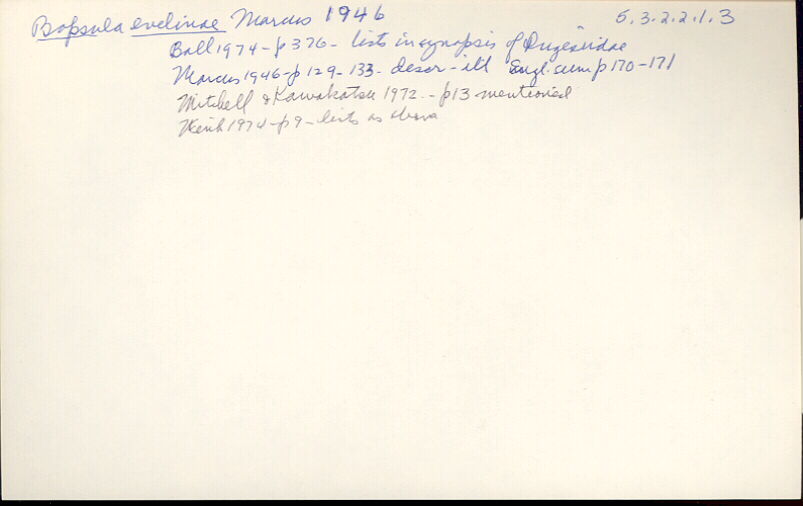 Bopsula evelinae Marcus 1946 5.3.2.2.1.3
Ball 1974 - p 376 - lists in synopsis of Dugesiidae
Marcus 1946 - p 129-133 - descr - ill Engl. summ p 170-171
Mitchell & Kawakatsu 1972 - p13 mentioned
1974 - p 9 - lists as above